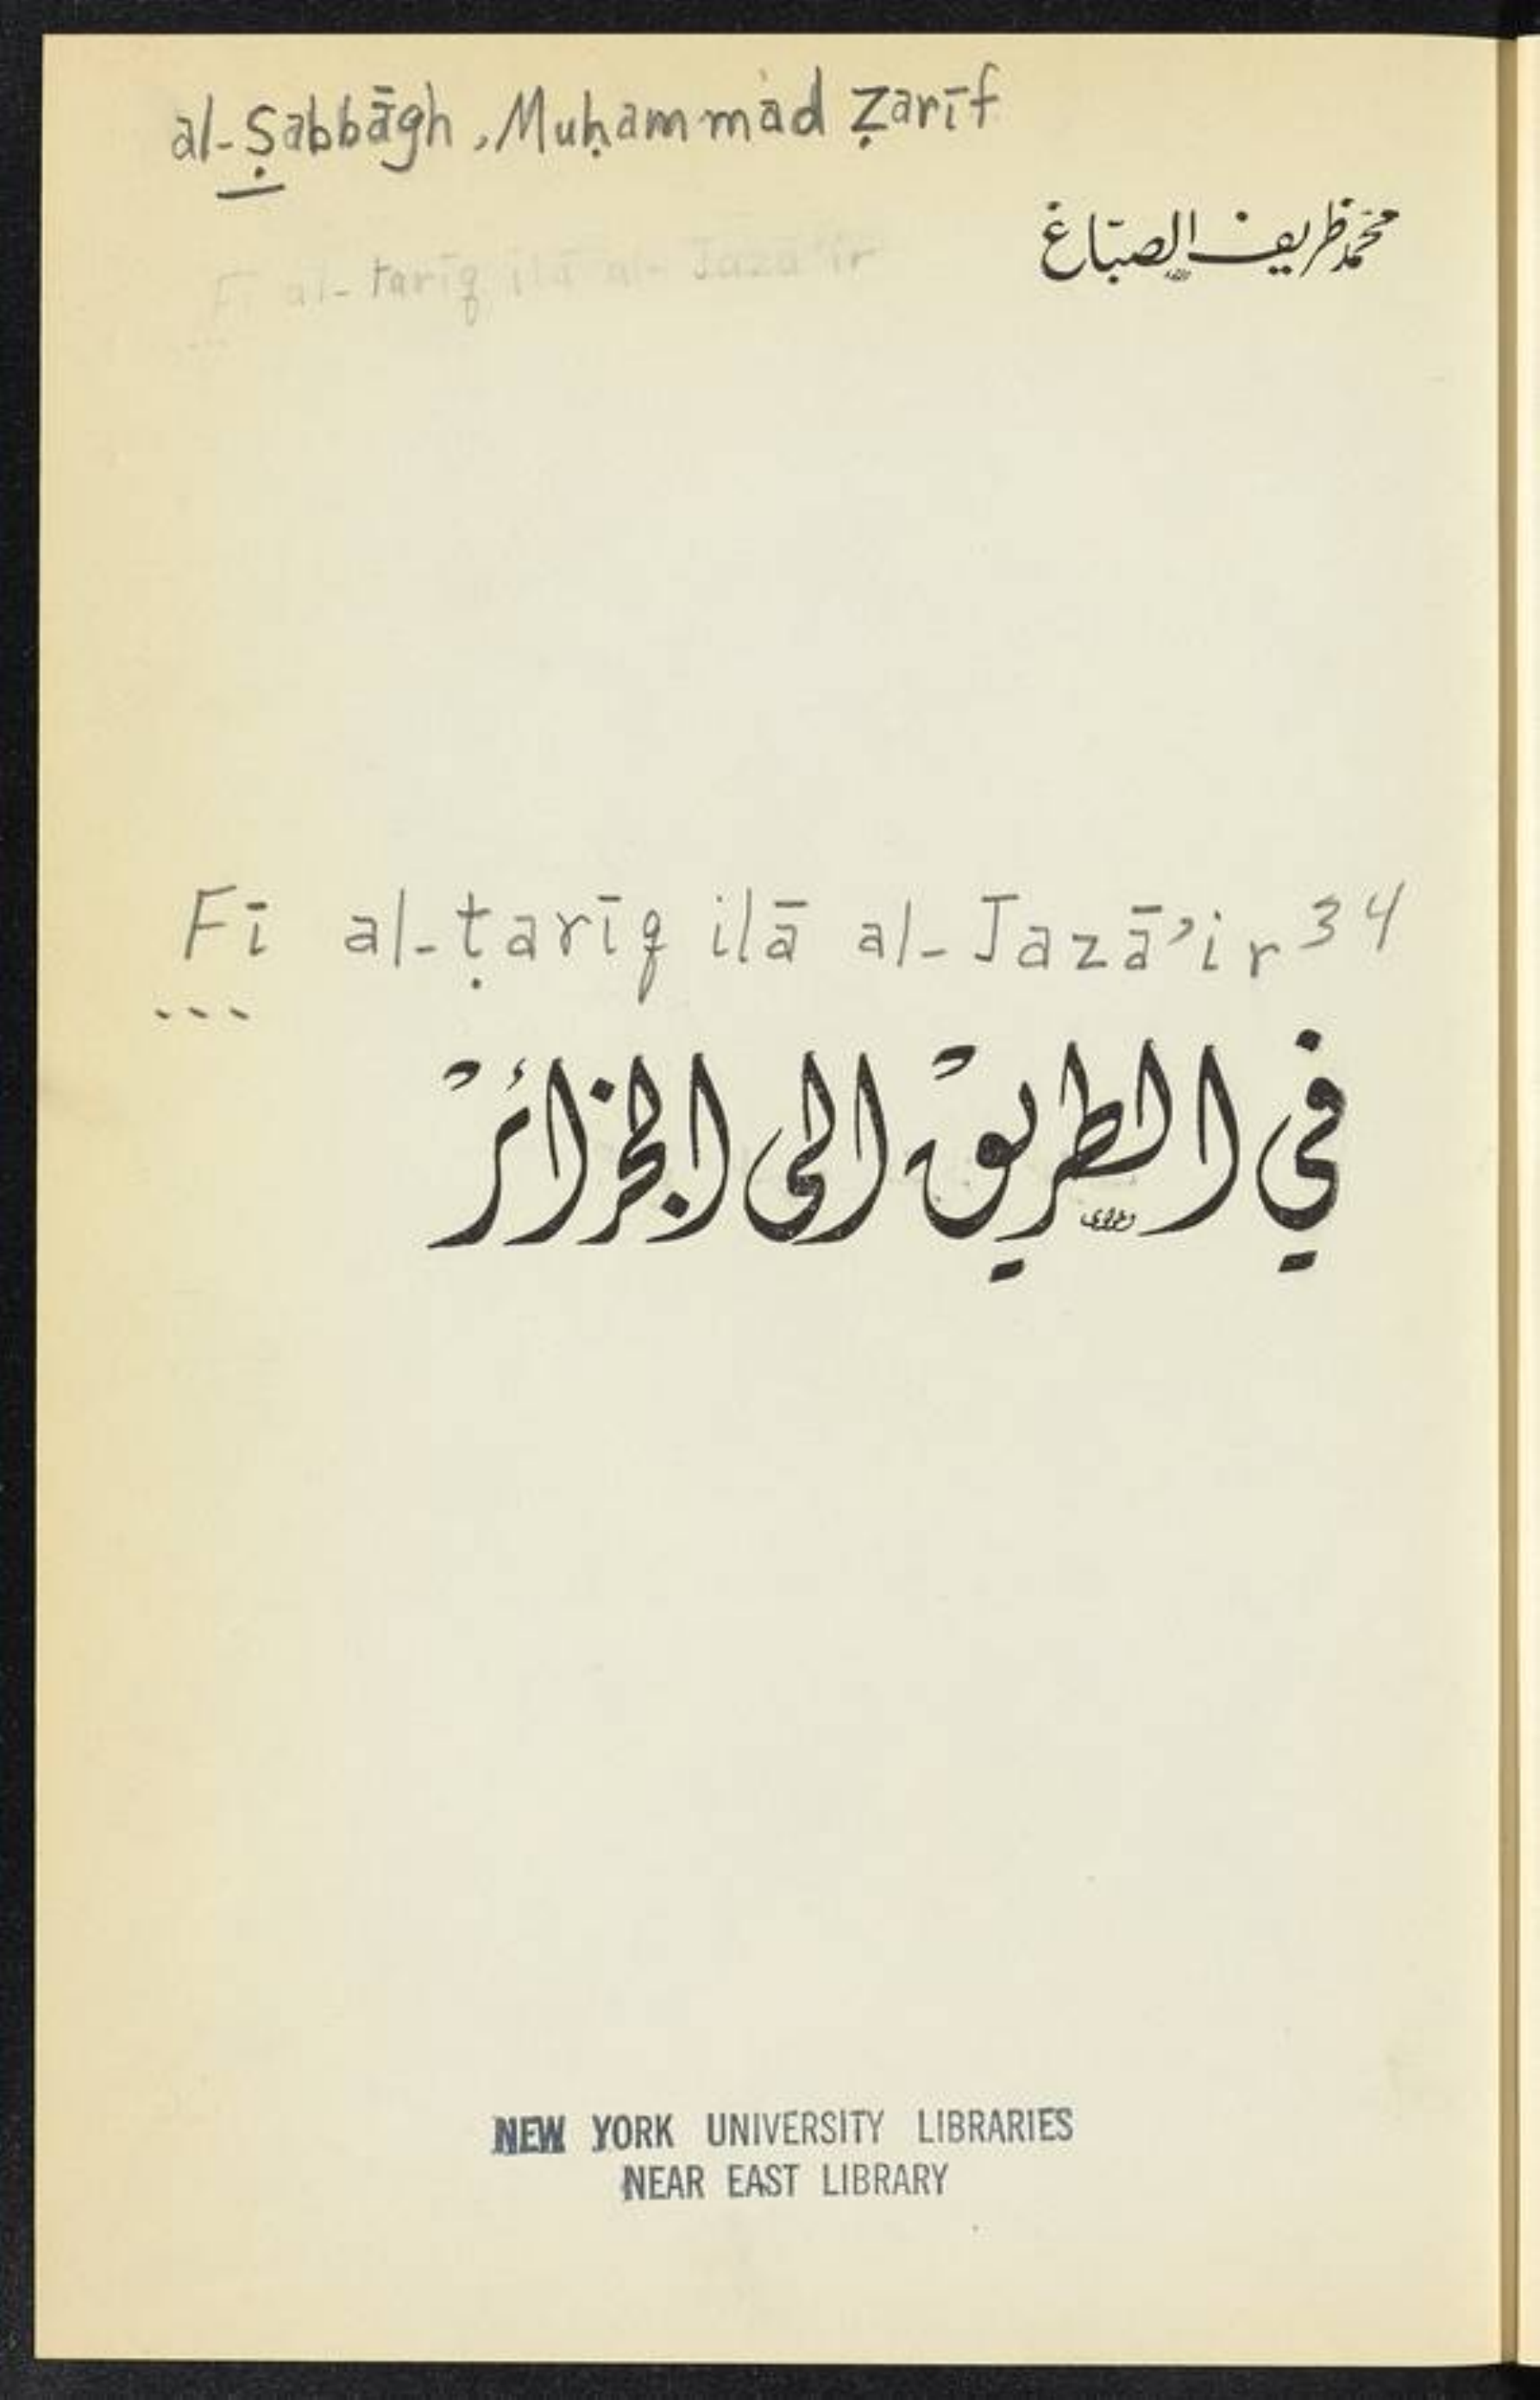 al-Ṣabbāgh, Muḥammad Ẓarīf
محمد ظريف الصبّاغ
Fī al-ṭarīq ilā al-Jazā'ir
Fī al-ṭarīq ilā al-Jazā'ir 34
في الطريق الى الجزائر
NEW YORK UNIVERSITY LIBRARIES
NEAR EAST LIBRARY